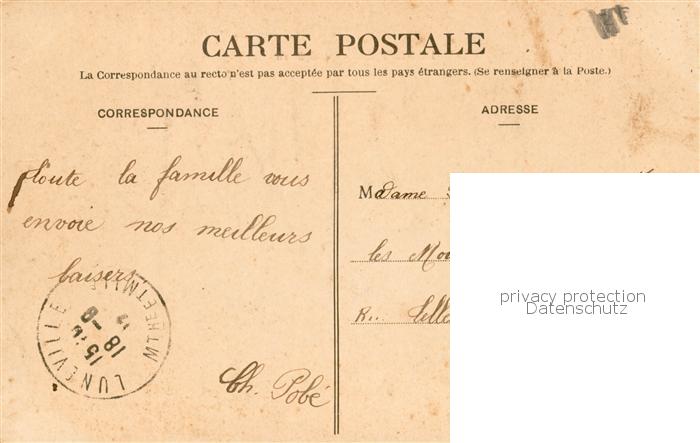 CARTE POSTALE
La Correspondance au recto n'est pas acceptée par tous les pays étrangers. (Se renseigner à la Poste.)
CORRESPONDANCE
ADRESSE
Toute la famille vous
envoie nos meilleurs
baisers
Ch. Pobé
Madame
les
R..
LUNEVILLE
MTHE ET MLLE
15
18 -8
privacy protection
Datenschutz